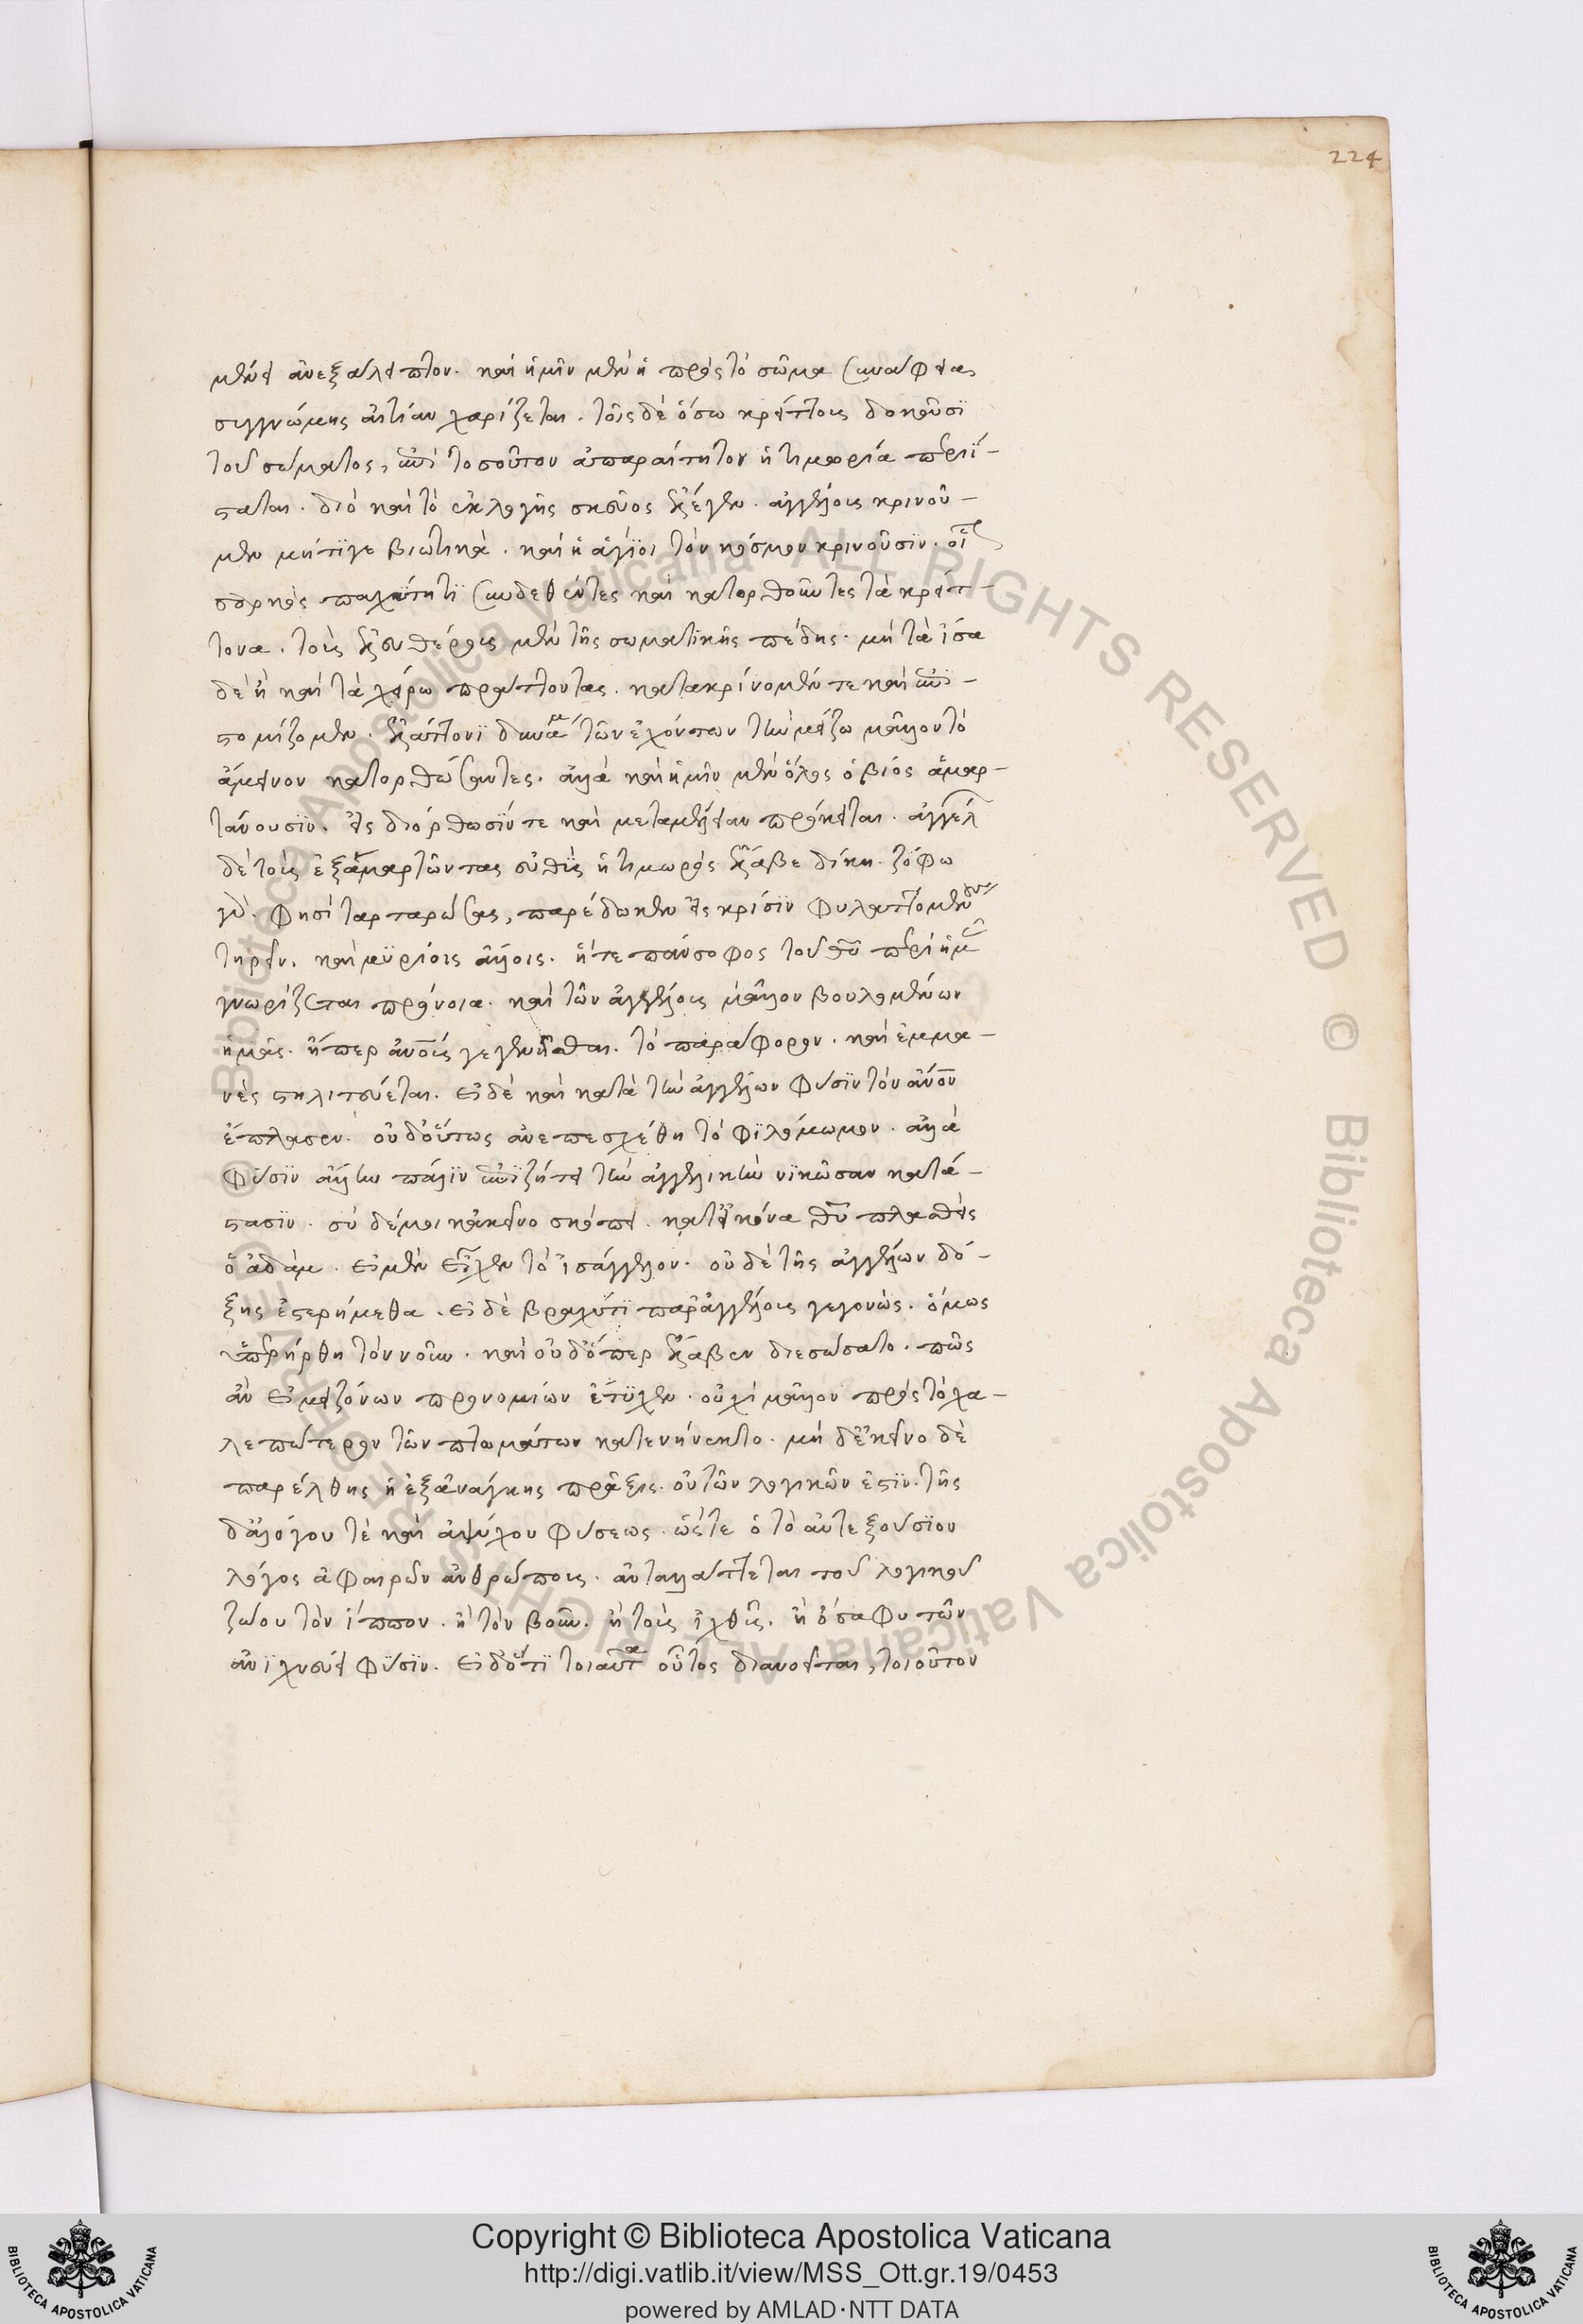 224
μένει ἀνεξάλειπτον. καὶ ἡμῖν μὲν ἡ πρὸς τὸ σῶμα συνάφεια,
συγγνώμης αἰτίαν χαρίζεται. τοῖς δὲ ὅσω κρείττοις δοκοῦσϊ
τοῦ σώματος, ἐπὶ τοσοῦτον ἀπαραίτητον ἡ τιμωρία περιΐ-
σταται. διὸ καὶ τὸ ἐκλογῆς σκεῦος ἔλεγεν. ἀγγέλοις κρινοῦ-
μεν μήτϊγε βιωτικά. καὶ ἡ ἁγίϊοι τὸν κόσμον κρινοῦσϊν. οἱ
σαρκὸς παχύτητϊ συνδεθέντες καὶ κατορθοῦντες τὰ κρείτ-
τονα. τοὺς ἐλευθέρους μὲν τῆς σωματϊκῆς πέδης. μὴ τὰ ἴσα
δὲ ἢ καὶ τὰ χείρω πράττοντας. κατακρίνομέν τε καὶ ἐπϊ-
στομίζομεν. ἐλάττονϊ δυνάμ τῶν ἐχόντων τὴν μείζω μᾶλλον τὸ
ἄμεινον κατορθώσαντες. ἀλλὰ καὶ ἡμῖν μὲν ὅλος ὁ βιός ἁμαρ-
τάνουσϊν. εἰς διόρθωσϊν τε καὶ μεταμέλειαν πρόκειται. ἀγγέλ
δὲ τοὺς ἐξαμαρτῶντας εὐθὺς ἡ τιμωρὸς ἔλαβε δίκη. ζόφω
γὰρ. φησὶ ταρταρώσας, παρέδωκεν εἰς κρίσϊν φυλαττομέν
τηρεῖν. καὶ μϋρίοις ἄλλοις. ἥ τε πάνσοφος τοῦ θυ περὶ ἡμ
γνωρίζεται πρόνοια. καὶ τῶν ἀγγέλοις μᾶλλον βουλομένων
ἡμᾶς. ἤπερ ἀνοις γεγενῆσθαι. τὸ παράφορον. καὶ ἐμμα-
νὲς στηλιτεύεται. εἰ δὲ καὶ κατὰ τὴν ἀγγέλων φύσϊν τὸν ἀνον
ἔπλασεν. οὐδ' οὕτως ἀνεπεσχέθη τὸ φϊλόμωμον. ἀλλὰ
φύσϊν ἄλλην πάλϊν ἐπϊζήτει τὴν ἀγγελικὴν νϊκῶσαν κατά-
στασϊν. σὺ δέ μοι κἀκεῖνο σκόπει. κατ' εἰκόνα θυ πλασθεὶς
ὁ ἀδάμ. εἰ μὲν εἶχεν τὸ ἰσάγγελον. οὐδὲ τῆς ἀγγέλων δό-
ξης ἐστερήμεθα. εἰ δὲ βραχύ τϊ παρ' ἀγγέλοις γεγονὼς. ὅμως
ὑπερήρθη τὸν νοῦν. καὶ οὐδ' ὅπερ ἔλαβεν διεσώσατο. πῶς
ἂν εἰ μειζόνων προνομιῶν ἔτϋχεν. οὐχὶ μᾶλλον πρὸς τὸ χα-
λεπώτερον τῶν πτωμάτων κατενήνεκτο. μὴ δ' ἐκεῖνο δὲ
παρέλθης ἡ ἐξ ἀνάγκης πρᾶξις. οὐ τῶν λογικῶν ἐστϊν. τῆς
δ' ἀλόγου τὲ καὶ ἀψύχου φύσεως. ὥστε ὁ τὸ αὐτεξούσϊον
λόγος ἀφαιρῶν ἀνθρώποις. ἀνταλλάττεται τοῦ λογικοῦ
ζώου τὸν ἵππον. ἢ τὸν βοῦν. ἢ τοὺς ἰχθῦς. ἢ ὅσα φυτῶν
ἀνϊχνεύει φϋσϊν. εἰ δ' ὅτϊ τοιαῦτα οὗτος διανοεῖται, τοιοῦτον
Copyright © Biblioteca Apostolica Vaticana
http://digi.vatlib.it/view/MSS_Ott.gr.19/0453
powered by AMLAD·NTT DATA